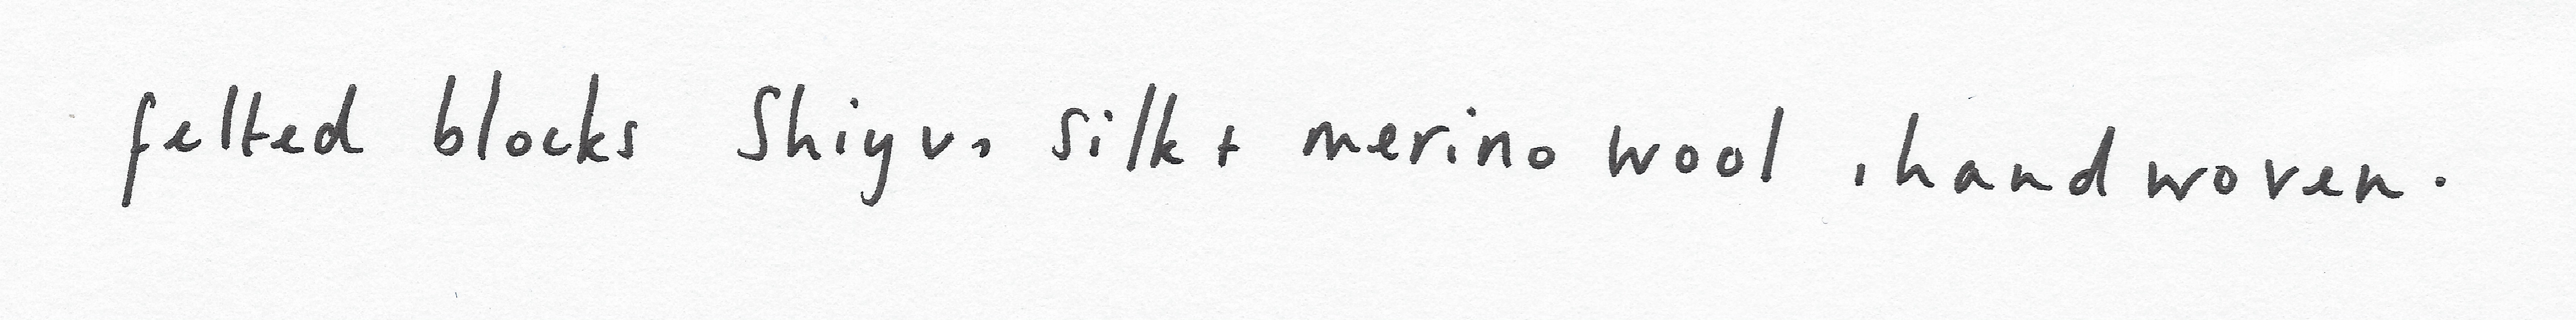 felted blocks Shiyv, silk + merino wool, handwoven.